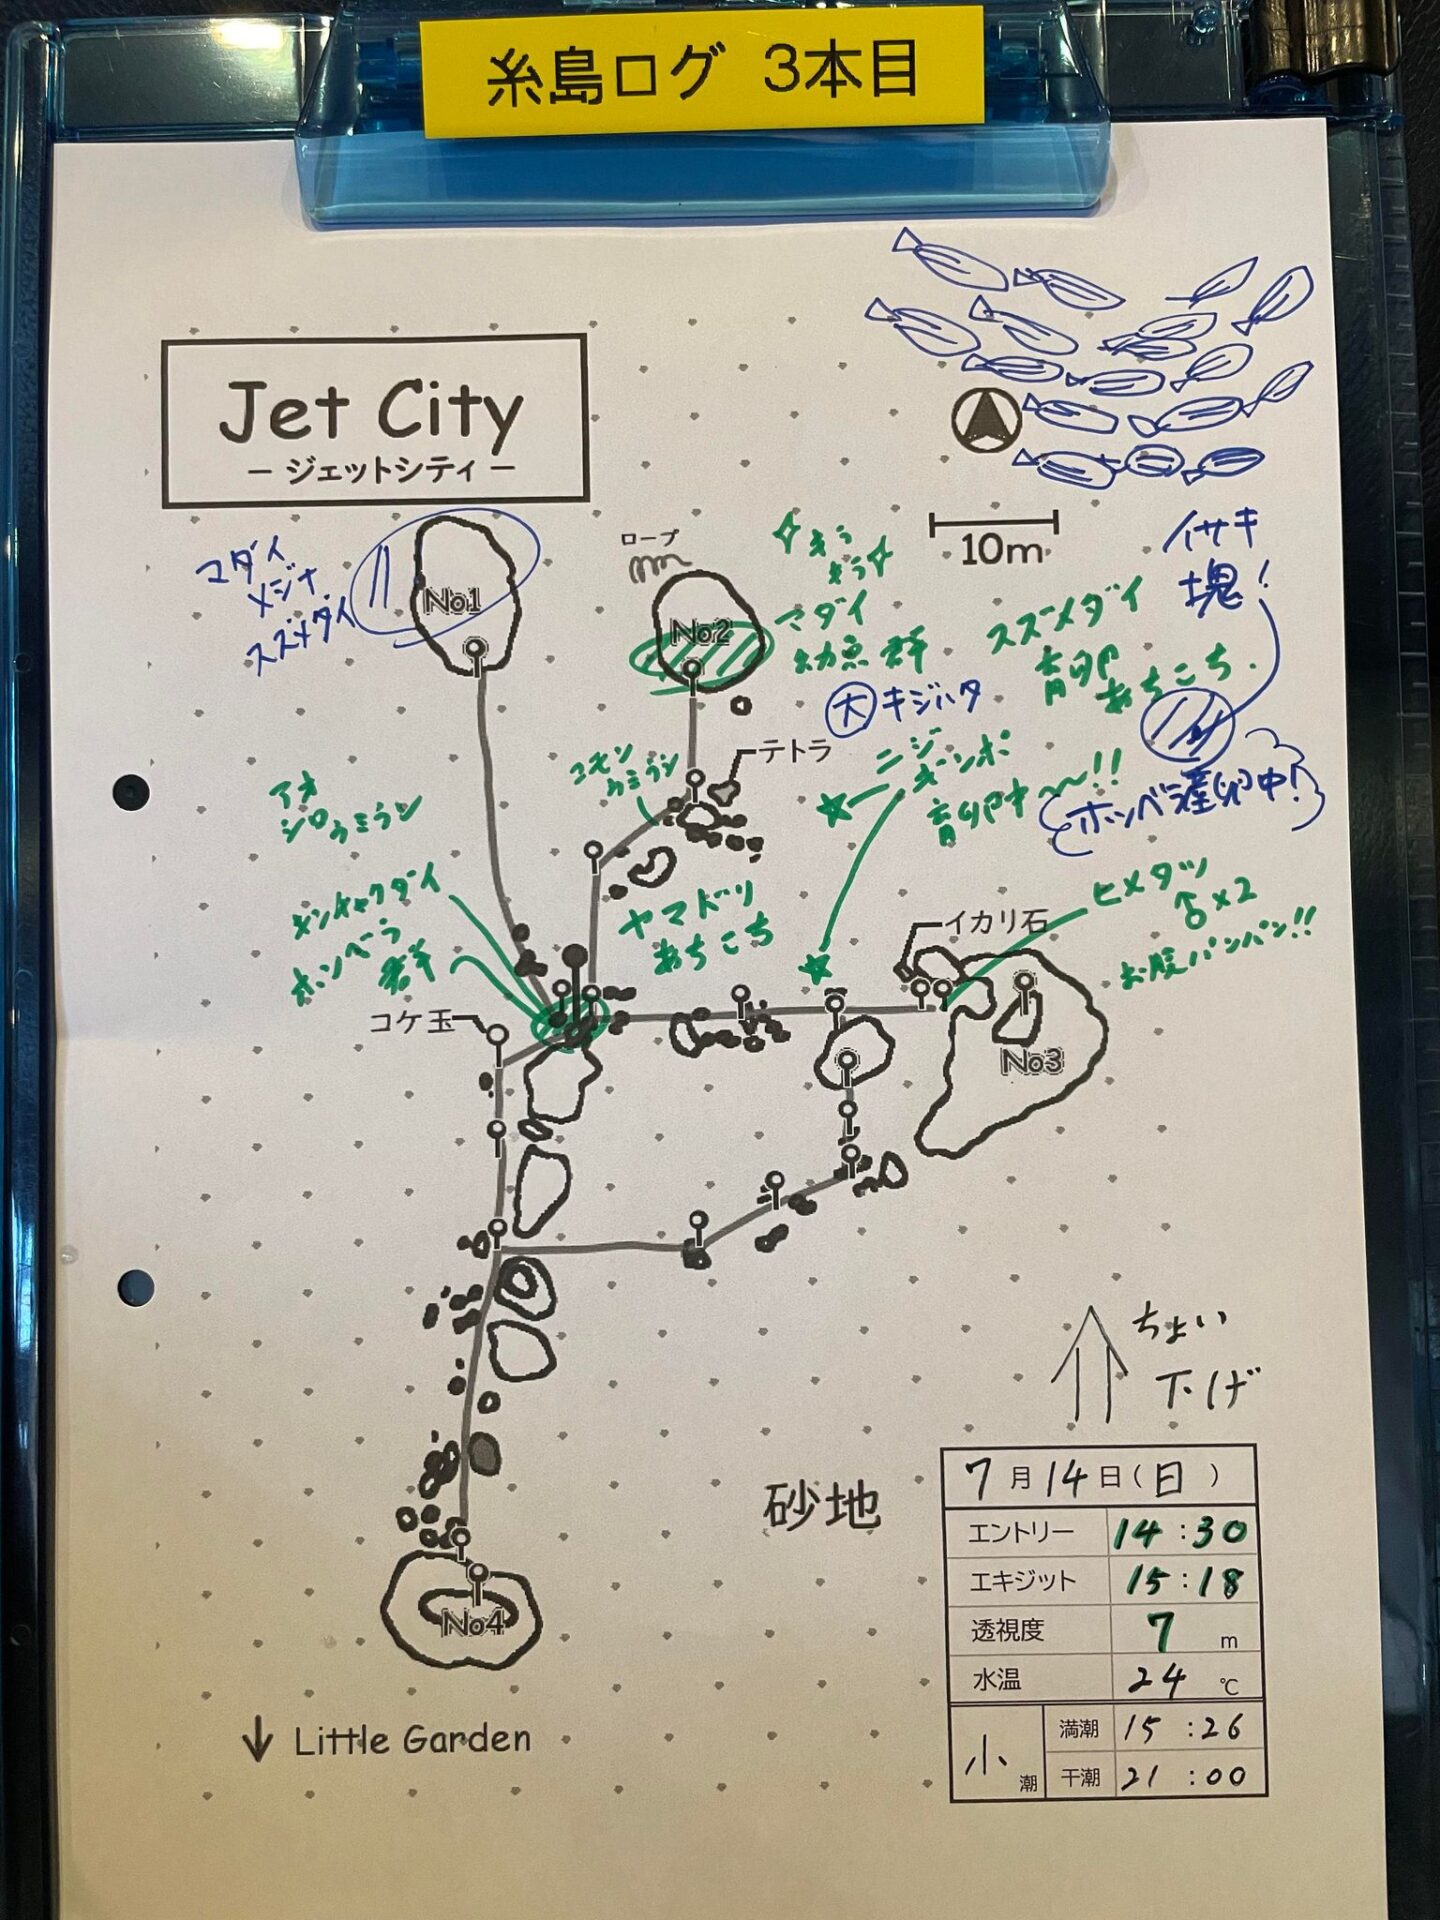 糸島ログ 3本目
Jet City
－ジェットシティ－
10m
イサキ
塊!
マダイ
メジナ
スズメダイ
No1
ロープ
No2
キラ
キラ
マダイ
幼魚 群
スズメダイ
育卵
あちこち.
大 キジハタ
テトラ
コモン
ウミウシ
ニジ
ギンポ
育卵才〜〜!!
ホンベ産卵中!
アオ
シロウミウシ
キンチャクダイ
ホンベラ
群
ヤマドリ
あちこち
ヒメタツ
♂×2
お腹パンパン!!
イカリ石
コケ玉
No3
ちょい
下げ
砂地
No4
↓ Little Garden
7月14日(日)
エントリー 14:30
エキジット 15:18
透視度 7 m
水温 24 ℃
小潮
満潮 15:26
干潮 21:00